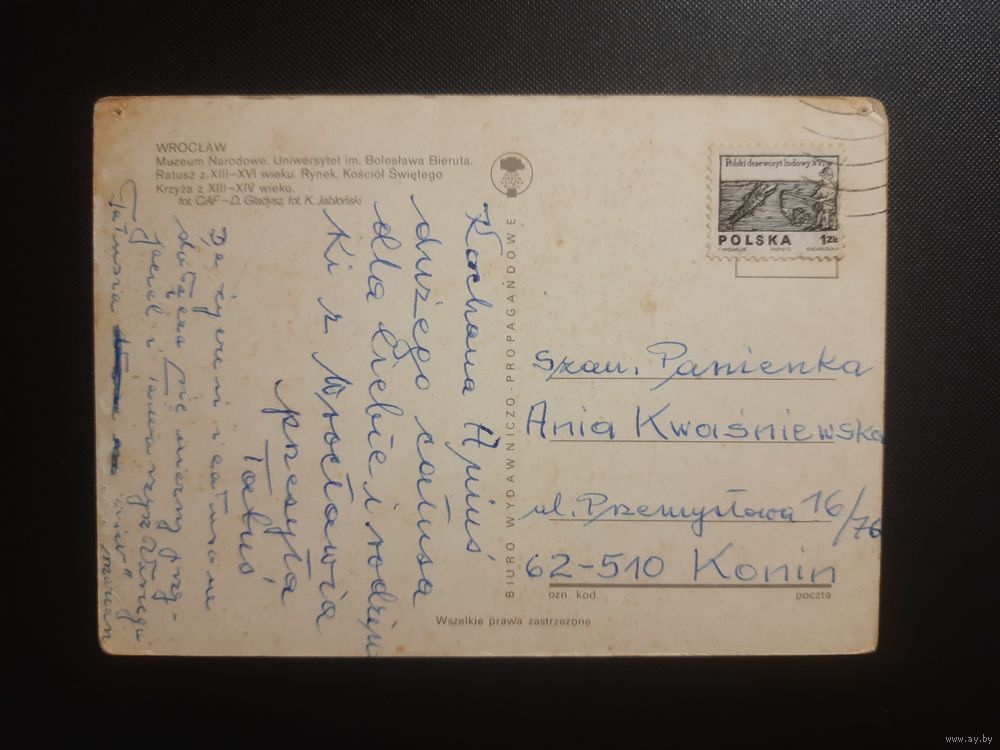 WROCŁAW
Muzeum Narodowe. Uniwersytet im. Bolesława Bieruta.
Ratusz z XIII–XVI wieku. Rynek. Kościół Świętego
Krzyża z XIII–XIV wieku.
fot. CAF – D. Gładysz, fot. K. Jabłoński
Kochana Aniuś
dużego całusa
dla Ciebie i rodzin
ki z Wrocławia
przesyła
Tatuś
i całusami
dołącza
Tatusia
marian
BIURO WYDAWNICZO-PROPAGANDOWE
Polski drzeworyt ludowy XVI w
POLSKA 1ZŁ
Szan. Panienka
Ania Kwaśniewska
ul. Przemysłowa 16/76
62-510 Konin
ozn. kod. poczta
Wszelkie prawa zastrzeżone
www.ay.by